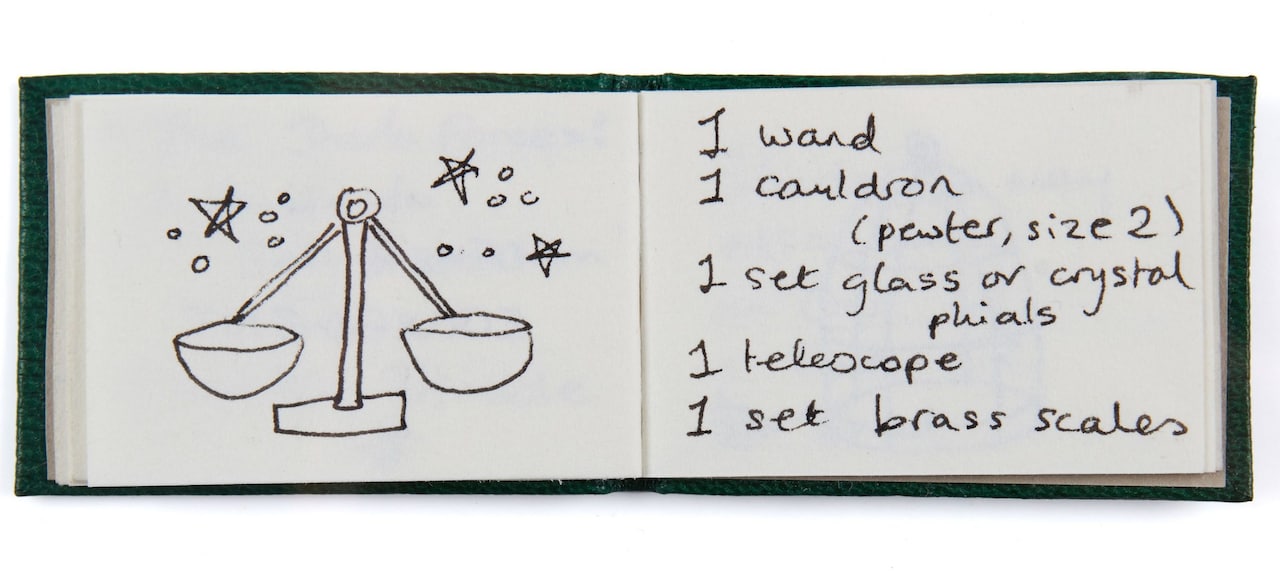 1 wand
1 cauldron
(pewter, size 2)
1 set glass or crystal
phials
1 telescope
1 set brass scales